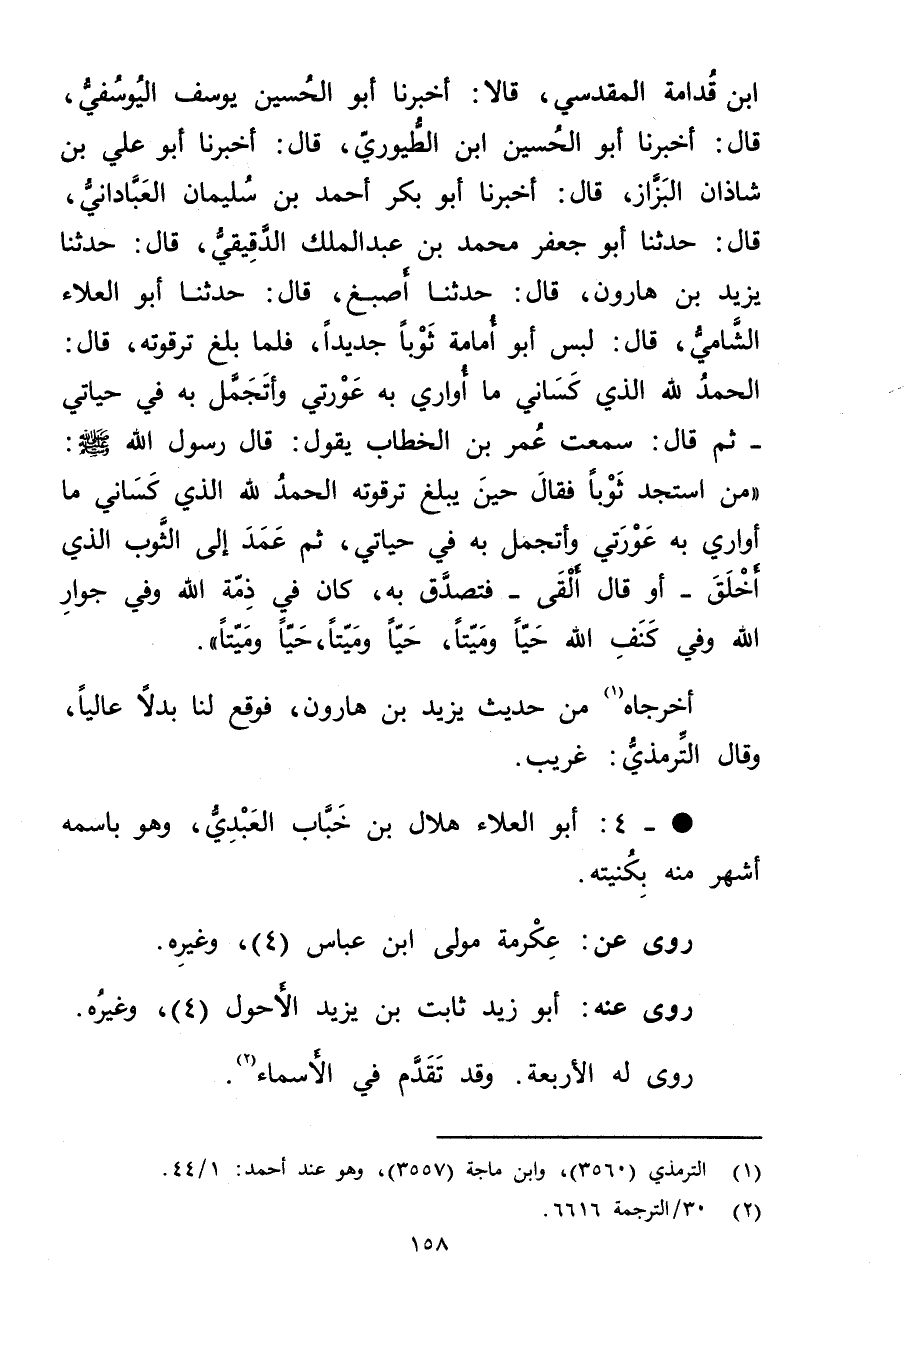 ابن قُدامة المقدسي، قالا: أخبرنا أبو الحُسين يوسف اليُوسُفيُّ،
قال: أخبرنا أبو الحُسين ابن الطُّيوريّ، قال: أخبرنا أبو علي بن
شاذان البَزَّاز، قال: أخبرنا أبو بكر أحمد بن سُليمان العَبَّادانيُّ،
قال: حدثنا أبو جعفر محمد بن عبدالملك الدَّقِيقيُّ، قال: حدثنا
يزيد بن هارون، قال: حدثنا أَصبغ، قال: حدثنا أبو العلاء
الشَّاميُّ، قال: لبس أبو أُمامة ثَوْباً جديداً، فلما بلغ ترقوته، قال:
الحمدُ لله الذي كَسَاني ما أُواري به عَوْرتي وأتَجَمَّل به في حياتي
ـ ثم قال: سمعت عُمر بن الخطاب يقول: قال رسول الله ﷺ:
«من استجد ثَوْباً فقالَ حينَ يبلغ ترقوته الحمدُ لله الذي كَسَاني ما
أواري به عَوْرَتي وأتجمل به في حياتي، ثم عَمَدَ إلى الثَّوب الذي
أَخْلَقَ ـ أو قال أَلْقَى ـ فتصدَّق به، كان في ذِمّة الله وفي جوارِ
الله وفي كَنَفِ الله حَيّاً ومَيّتاً، حَيّاً ومَيّتاً، حَيّاً ومَيّتاً».
أخرجاه(١) من حديث يزيد بن هارون، فوقع لنا بدلاً عالياً،
وقال التِّرمذيُّ: غريب.
● ـ ٤: أبو العلاء هلال بن خَبَّاب العَبْدِيُّ، وهو باسمه
أشهر منه بِكُنيته.
روى عن: عِكْرمة مولى ابن عباس (٤)، وغيرِه.
روى عنه: أبو زيد ثابت بن يزيد الأَحول (٤)، وغيرُه.
روى له الأربعة. وقد تَقَدَّم في الأَسماء(٢).
(١) الترمذي (٣٥٦٠)، وابن ماجة (٣٥٥٧)، وهو عند أحمد: ٤٤/١.
(٢) ٣٠/الترجمة ٦٦١٦.
١٥٨